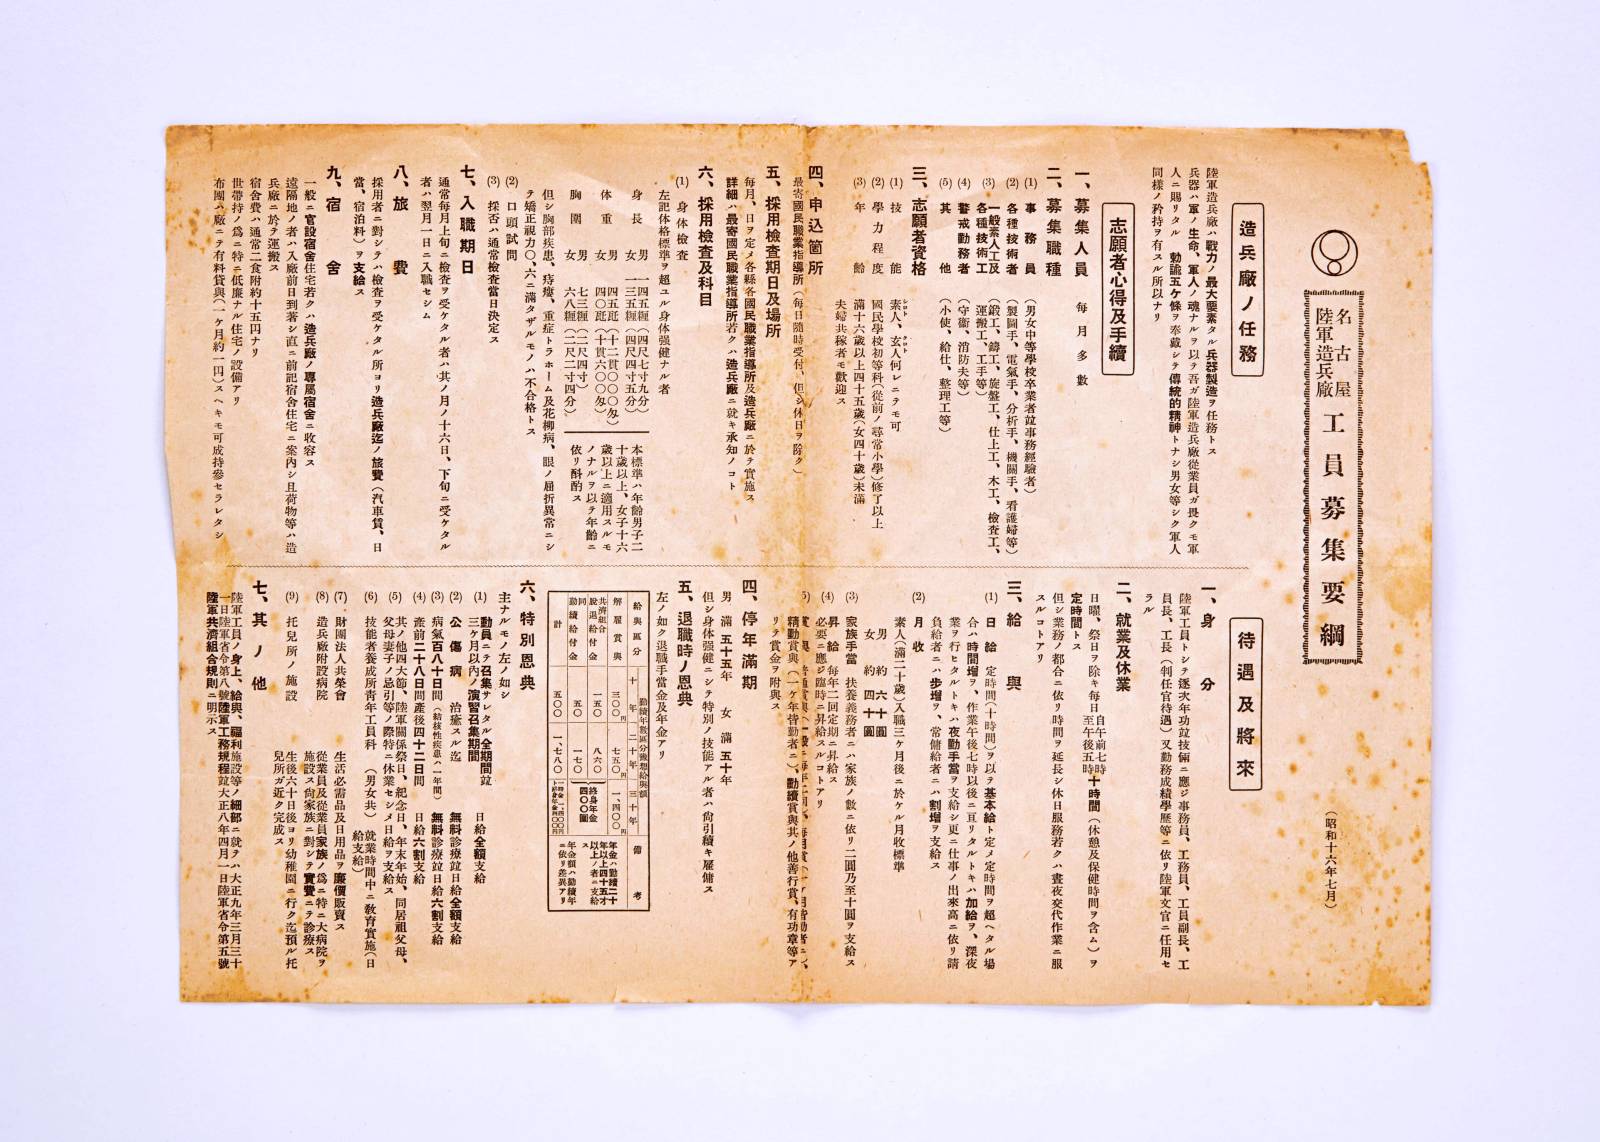 名古屋
陸軍造兵廠
工員募集要綱
(昭和十六年七月)
造兵廠ノ任務
陸軍造兵廠ハ戰力ノ最大要素タル兵器製造ヲ任務トス
兵器ハ軍ノ生命、軍人ノ魂ナルヲ以テ吾ガ陸軍造兵廠從業員ガ畏クモ軍
人ニ賜リタル 勅諭五ケ條ヲ奉戴シテ傳統的精神トナシ男女等シク軍人
同樣ノ矜持ヲ有スル所以ナリ
志願者心得及手續
一、募集人員 每月多數
二、募集職種
(1) 事務員 (男女中等學校卒業者竝事務經驗者)
(2) 各種技術者 (製圖手、電氣手、分析手、機關手、看護婦等)
(3) 一般素人工及
各種技術工 (鍛工、鑄工、旋盤工、仕上工、木工、檢査工、
運搬工、工手等)
(4) 警戒勤務者 (守衞、消防夫等)
(5) 其他 (小使、給仕、整理工等)
三、志願者資格
(1) 技能 素人、玄人何レニテモ可
(2) 學力程度 國民學校初等科(從前ノ尋常小學)修了以上
(3) 年齡 滿十六歲以上四十五歲(女四十歲)未滿
夫婦共稼者モ歡迎ス
四、申込箇所
最寄國民職業指導所(每日隨時受付、但シ休日ヲ除ク)
五、採用檢査期日及場所
每月、日ヲ定メ各縣各國民職業指導所及造兵廠ニ於テ實施ス
詳細ハ最寄國民職業指導所若クハ造兵廠ニ就キ承知ノコト
六、採用檢査及科目
(1) 身體檢査
左記体格標準ヲ超ユル身体强健ナル者
身長 男 一四五糎(四尺七寸九分)
女 一三五糎(四尺四寸五分)
体重 男 四五瓩(十二貫〇〇〇匁)
女 四〇瓩(十貫六〇〇匁)
胸圍 男 七三糎(二尺四寸)
女 六八糎(二尺二寸四分)
本標準ハ年齡男子二
十歲以上、女子十六
歲以上ニ適用スルモ
ノナルヲ以テ年齡ニ
依リ酌酌ス
但シ胸部疾患、痔瘻、重症トラホーム及花柳病、眼ノ屈折異常ニシ
テ矯正視力〇、六ニ滿タザルモノハ不合格トス
(2) 口頭試問
(3) 採否ハ通常檢査當日決定ス
七、入職期日
通常每月上旬ニ檢査ヲ受ケタル者ハ其ノ月ノ十六日、下旬ニ受ケタル
者ハ翌月一日ニ入職セシム
八、旅費
採用者ニ對シテハ檢査ヲ受ケタル所ヨリ造兵廠迄ノ旅費(汽車賃、日
當、宿泊料)ヲ支給ス
九、宿舍
一般ニ官設宿舍住宅若クハ造兵廠ノ專屬宿舍ニ收容ス
遠隔地ノ者ハ入廠前日到著シ直ニ前記宿舍住宅ニ案內シ且荷物等ハ造
兵廠ニ於テ運搬ス
宿舍費ハ通常二食附約十五圓ナリ
世帶持ノ爲ニ特ニ低廉ナル住宅ノ設備アリ
布團ハ廠ニテ有料貸與(一ケ月約一円)スヘキモ可成持參セラレタシ
待遇及將來
一、身分
陸軍工員トシテ逐次年功竝技倆ニ應ジ事務員、工務員、工員副長、工
員長、工長(判任官待遇)又勤務成績學歷等ニ依リ陸軍文官ニ任用セ
ラル
二、就業及休業
日曜、祭日ヲ除キ每日 自午前七時
至午後五時 十時間(休憩及保健時間ヲ含ム)ヲ
定時間トス
但シ業務ノ都合ニ依リ時間ヲ延長シ休日服務若クハ晝夜交代作業ニ服
スルコトアリ
三、給與
(1) 日給 定時間(十時間)ヲ以テ基本給ト定メ定時間ヲ超ヘタル場
合ハ時間增ヲ、作業午後七時以後ニ亘リタルトキハ加給ヲ、深夜
業ヲ行ヒタルトキハ夜勤手當ヲ支給シ更ニ仕事ノ出來高ニ依リ請
負給者ニハ步增ヲ、常傭給者ニハ割增ヲ支給ス
(2) 月收
素人(滿二十歲)入職三ケ月後ニ於ケル月收標準
男 約六十圓
女 約四十圓
(3) 家族手當 扶養義務者ニハ家族ノ數ニ依リ二圓乃至十圓ヲ支給ス
(4) 昇給 每年二回定期ニ昇給ス
必要ニ應ジ臨時ニ昇給スルコトアリ
(5) 賞與
精勤賞與(一ケ年皆勤者ニ)、勤續賞與其ノ他善行賞、有功章等ア
リテ賞金ヲ附與ス
四、停年滿期
男 滿五十五年 女 滿五十年
但シ身体强健ニシテ特別ノ技能アル者ハ尙引續キ雇傭ス
五、退職時ノ恩典
左ノ如ク退職手當金及年金アリ
給與區分 勤續年數區分豫想給與額 備考
十年 二十年 三十年
解雇賞與 三〇〇円 七五〇円 一、四〇〇円
共濟組合
脫退給付金 一五〇 八六〇 終身年金
四〇〇圓
同
勤續給付金 五〇 一七〇
計 五〇〇 一、七八〇 一時金一、四〇〇円
終身年金四〇〇円
年金ハ勤續二十
年以上四十五才
以上ノ者ニ支給
ス
年金額ハ勤續年
ニ依リ差異アリ
六、特別恩典
主ナルモノ左ノ如シ
(1) 動員ニテ召集サレタル全期間竝
三ケ月以內ノ演習召集期間 日給全額支給
(2) 公傷病 治癒スル迄 無料診療竝日給全額支給
(3) 病氣百八十日間(結核性疾患ハ一年間) 無料診療竝日給六割支給
(4) 產前二十八日間產後四十二日間 日給六割支給
(5) 其ノ他四大節、陸軍關係祭日、紀念日、年末年始、同居祖父母、
父母妻子ノ忌引等ノ際特ニ休業セシメ日給ヲ支給ス
(6) 技能者養成所靑年工員科 (男女共) 就業時間中ニ敎育實施(日
給支給)
(7) 財團法人共榮會 生活必需品及日用品ヲ廉價販賣ス
(8) 造兵廠附設病院 從業員及從業員家族ノ爲ニ特ニ大病院ヲ
施設ス尙家族ニ對シテ實費ニテ診療ス
(9) 托兒所ノ施設 生後六十日後ヨリ幼稚園ニ行ク迄預ル托
兒所ガ近ク完成ス
七、其ノ他
陸軍工員ノ身上、給與、福利施設等ノ細部ニ就テハ大正九年三月三十
一日陸軍省令第八號陸軍工務規程竝大正八年四月一日陸軍省令第五號
陸軍共濟組合規則ニ明示ス